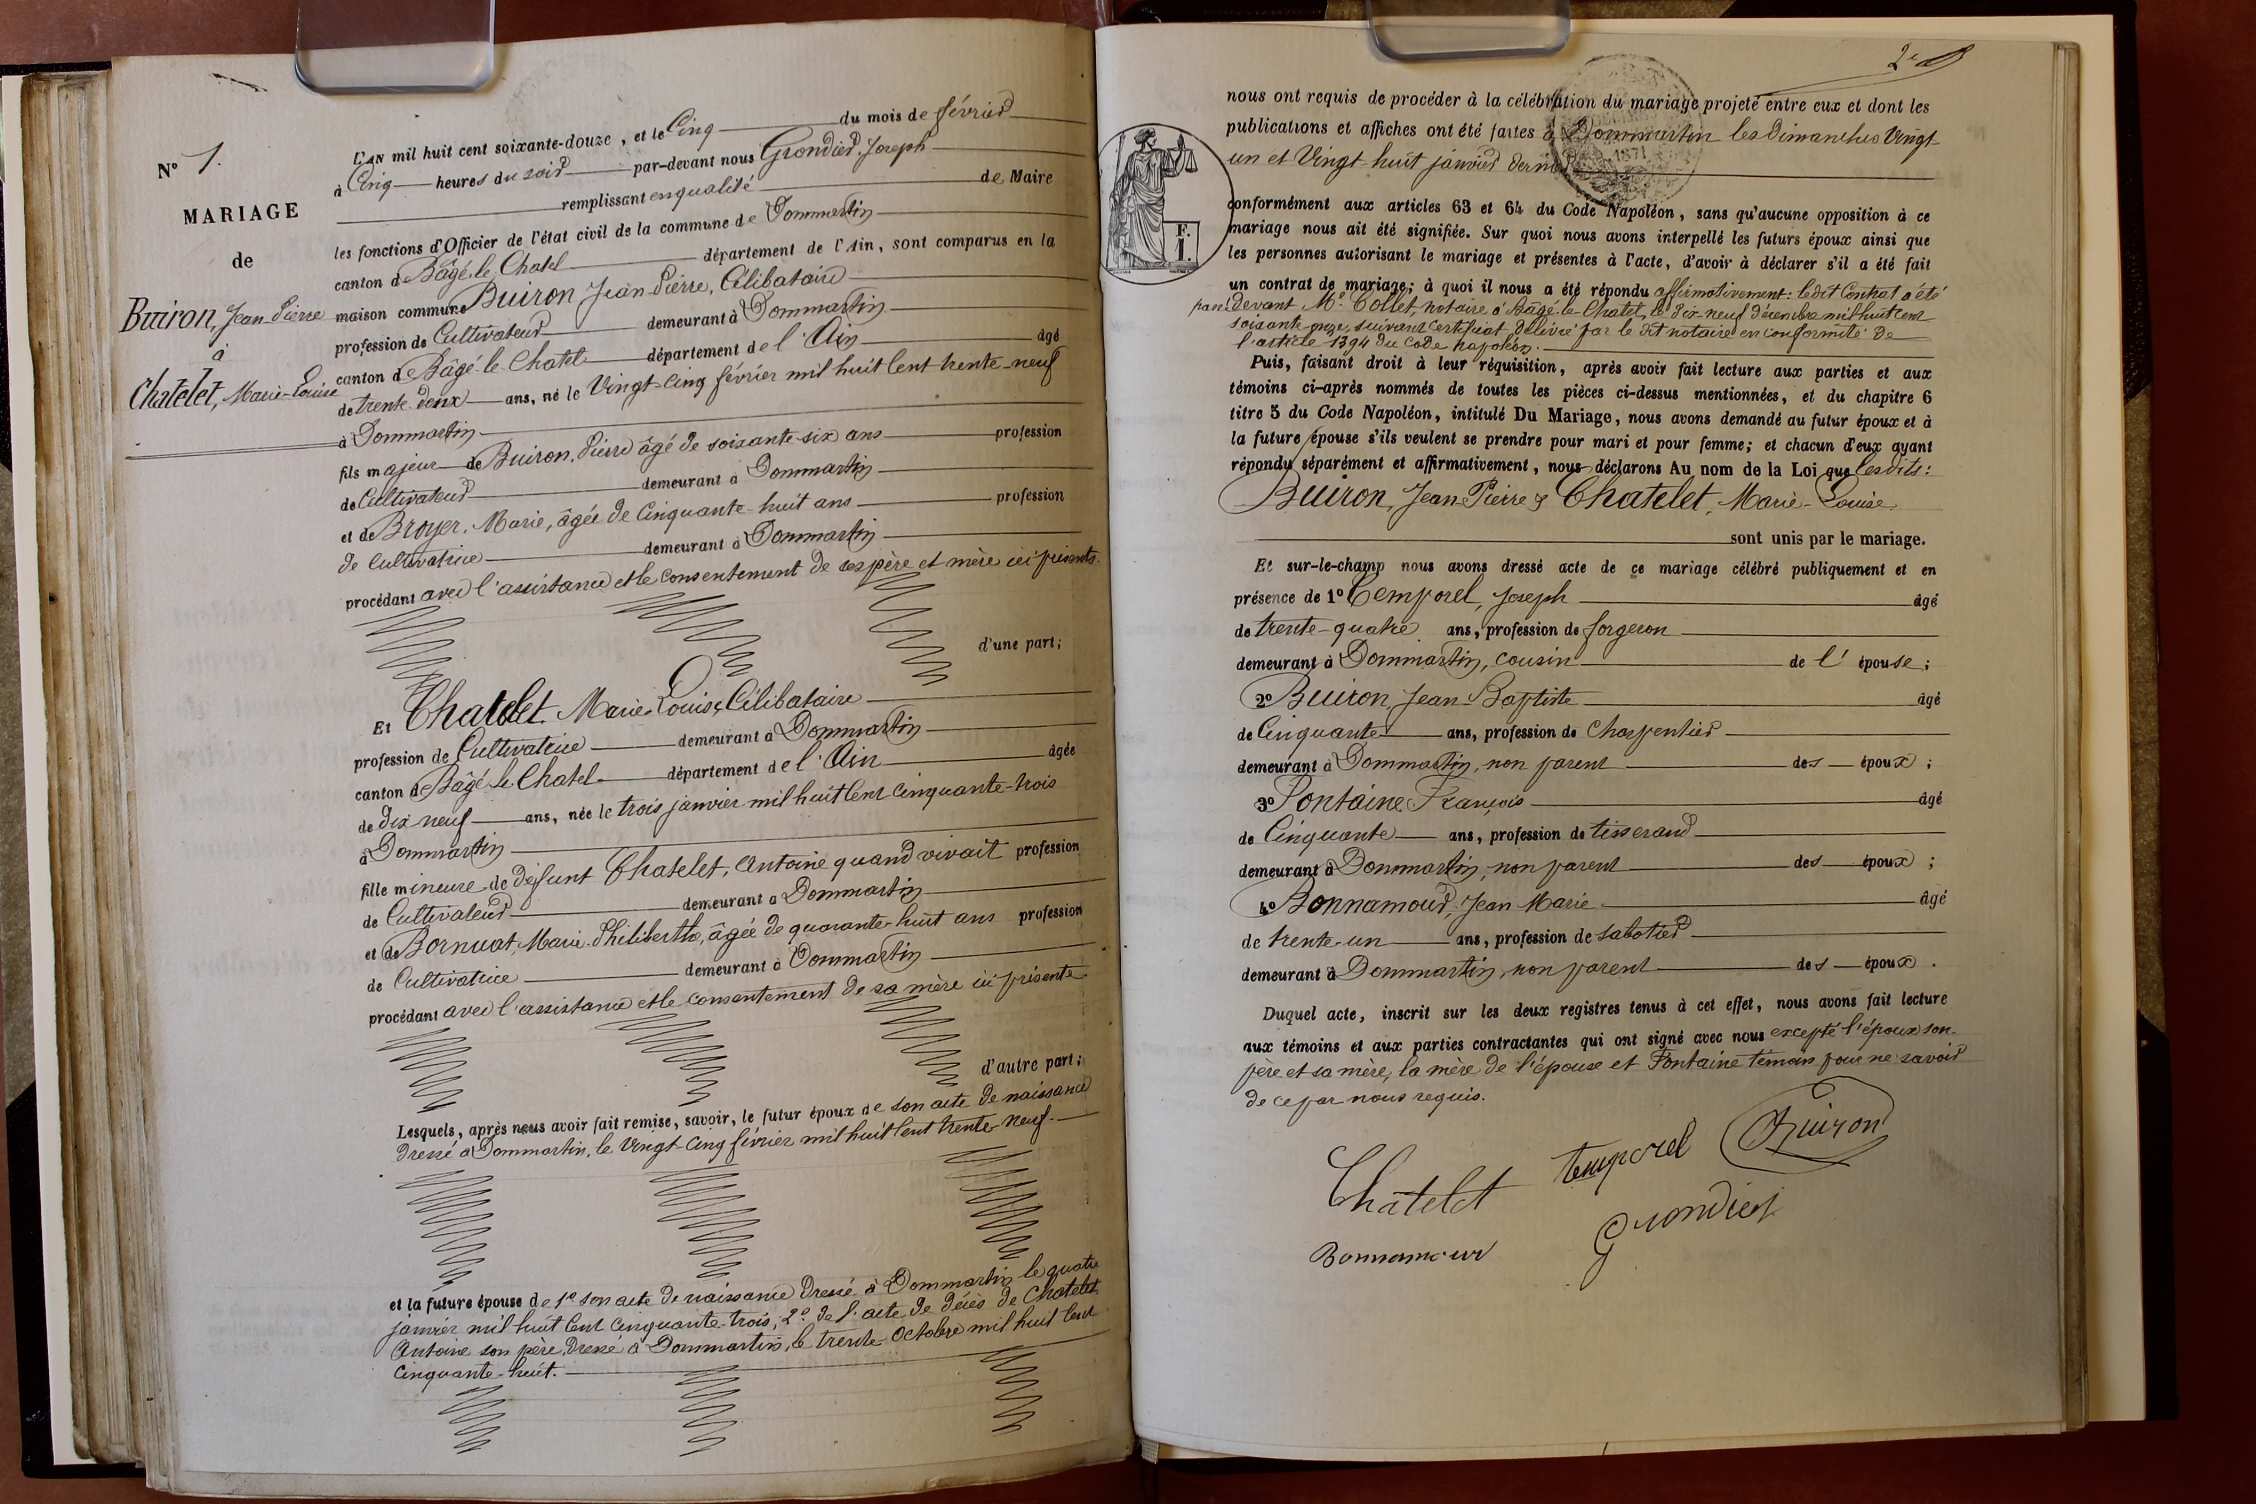 N° 1.
MARIAGE
de
Buiron, Jean-Pierre
à
Chatelet, Marie-Louise
L'AN mil huit cent soixante-douze, et le Cinq du mois de février
à Cinq heures du soir par-devant nous Grondier, Joseph
remplissant en qualité de Maire
les fonctions d'Officier de l'état civil de la commune de Dommartin
canton de Bâgé-le-Chatel département de l'Ain, sont comparus en la
maison commune Buiron Jean-Pierre, Célibataire
profession de Cultivateur demeurant à Dommartin
canton de Bâgé-le-Chatel département de l'Ain âgé
de trente-deux ans, né le Vingt-Cinq février mil huit Cent trente-neuf
à Dommartin
fils majeur de Buiron, Pierre âgé de soixante-six ans profession
de Cultivateur demeurant à Dommartin
et de Broyer, Marie, âgée de Cinquante-huit ans profession
de Cultivatrice demeurant à Dommartin
procédant avec l'assistance et le consentement de ses père et mère ici présents
d'une part;
Et Chatelet Marie-Louise, Célibataire
profession de Cultivatrice demeurant à Dommartin
canton de Bâgé-le-Chatel département de l'Ain âgée
de dix-neuf ans, née le trois janvier mil huit Cent Cinquante-trois
à Dommartin
fille mineure de défunt Chatelet, Antoine quand vivait profession
de Cultivateur demeurant à Dommartin
et de Bornuat, Marie-Philiberthe, âgée de quarante-huit ans profession
de Cultivatrice demeurant à Dommartin
procédant avec l'assistance et le consentement de sa mère ici présente
d'autre part;
Lesquels, après nous avoir fait remise, savoir, le futur époux de son acte de naissance
dressé à Dommartin, le Vingt-Cinq février mil huit Cent trente-neuf.
et la future épouse de 1° son acte de naissance dressé à Dommartin le quatre
janvier mil huit Cent Cinquante-trois; 2° de l'acte de décès de Chatelet
Antoine son père, dressé à Dommartin, le trente Octobre mil huit Cent
Cinquante-huit.
2e
nous ont requis de procéder à la célébration du mariage projeté entre eux et dont les
publications et affiches ont été faites à Dommartin les Dimanches Vingt-
un et Vingt-huit janvier dernier
1871
F.
I.
conformément aux articles 63 et 64 du Code Napoléon, sans qu'aucune opposition à ce
mariage nous ait été signifiée. Sur quoi nous avons interpellé les futurs époux ainsi que
les personnes autorisant le mariage et présentes à l'acte, d'avoir à déclarer s'il a été fait
un contrat de mariage; à quoi il nous a été répondu affirmativement: ledit Contrat a été
devant Me Collet, notaire à Bâgé-le-Chatel, le dix-neuf décembre mil huit cent
soixante-onze, suivant Certificat délivré par le dit notaire en conformité de
l'article 1394 du Code Napoléon.
Puis, faisant droit à leur réquisition, après avoir fait lecture aux parties et aux
témoins ci-après nommés de toutes les pièces ci-dessus mentionnées, et du chapitre 6
titre 5 du Code Napoléon, intitulé Du Mariage, nous avons demandé au futur époux et à
la future épouse s'ils veulent se prendre pour mari et pour femme; et chacun d'eux ayant
répondu séparément et affirmativement, nous déclarons Au nom de la Loi que lesdits:
Buiron, Jean-Pierre & Chatelet, Marie-Louise
sont unis par le mariage.
Et sur-le-champ nous avons dressé acte de ce mariage célébré publiquement et en
présence de 1° Temporel, Joseph âgé
de trente-quatre ans, profession de forgeron
demeurant à Dommartin, cousin de l'épouse;
2° Buiron, Jean-Baptiste âgé
de Cinquante ans, profession de Charpentier
demeurant à Dommartin, non parent des époux;
3° Fontaine François âgé
de Cinquante ans, profession de tisserand
demeurant à Dommartin, non parent des époux;
4° Bonnamour, Jean Marie âgé
de trente-un ans, profession de sabotier
demeurant à Dommartin, non parent des époux.
Duquel acte, inscrit sur les deux registres tenus à cet effet, nous avons fait lecture
aux témoins et aux parties contractantes qui ont signé avec nous excepté l'époux son
père et sa mère, la mère de l'épouse et Fontaine témoin pour ne savoir
de ce par nous requis.
Chatelet temporel Buiron
Bonnamour Grondier